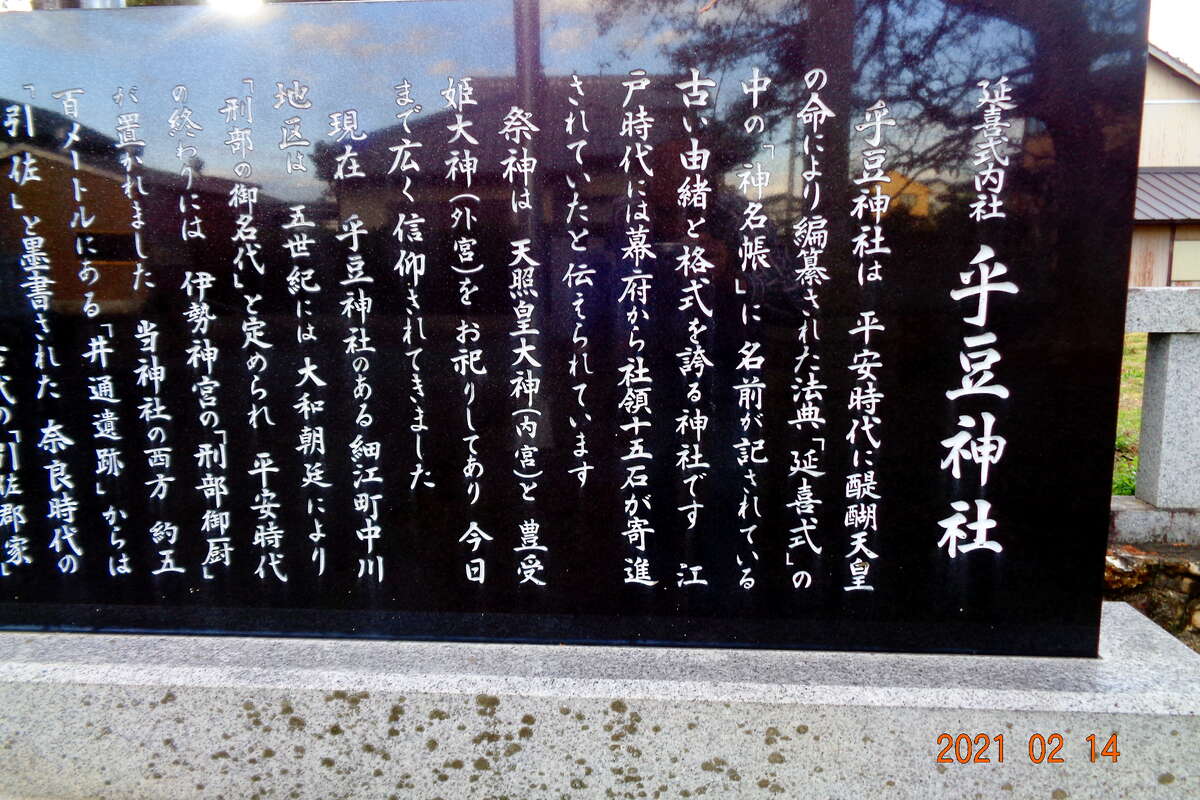 延喜式内社 乎豆神社
乎豆神社は 平安時代に醍醐天皇
の命により編纂された法典「延喜式」の
中の「神名帳」に 名前が記されている
古い由緒と格式を誇る神社です 江
戸時代には幕府から社領十五石が寄進
されていたと伝えられています
祭神は 天照皇大神(内宮)と 豊受
姫大神(外宮)を お祀りしてあり 今日
まで広く信仰されてきました
現在 乎豆神社のある 細江町中川
地区は 五世紀には大和朝廷により
「刑部の御名代」と定められ 平安時代
の終わりには 伊勢神宮の「刑部御厨」
が置かれました 当神社の西方 約五
百メートルにある「井通遺跡」からは
「引佐」と墨書された 奈良時代の
代の「引佐郡家」
2021 02 14